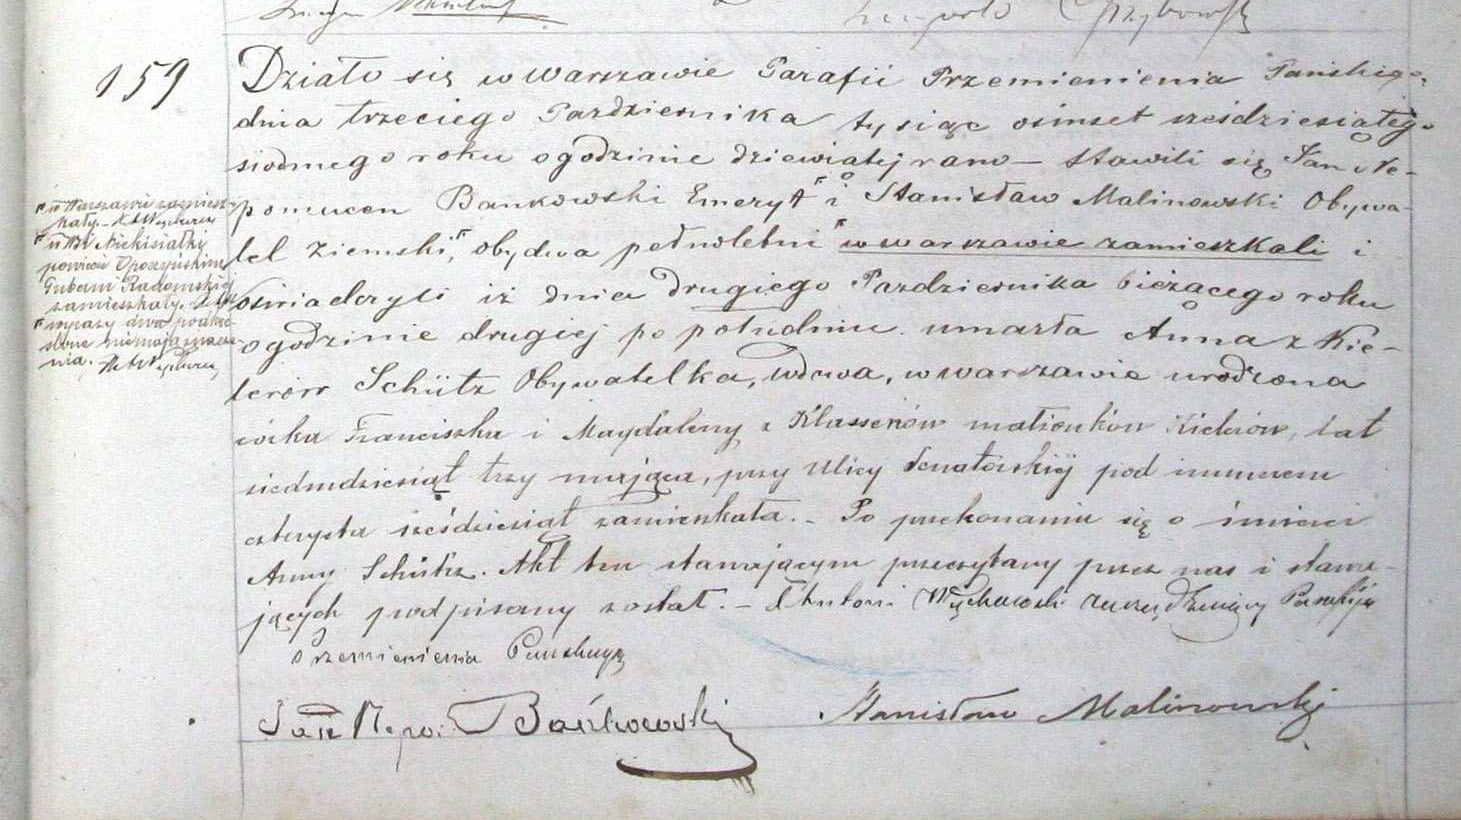 159
Działo się w Warszawie Parafii Przemienienia Pańskiego,
dnia trzeciego Pazdziernika tysiąc ośmset sześdziesiątego
siodmego roku o godzinie dziewiątej rano – Stawili się Jan Ne-
pomucen Bankowski Emeryt i Stanisław Malinowski Obywa-
tel Ziemski, obydwa pełnoletni w Warszawie zamieszkali i
oświadczyli iż dnia drugiego Pazdziernika bieżącego roku
o godzinie drugiej po południu umarła Anna z Kie-
lerów Schütz Obywatelka, wdowa, w Warszawie urodzona
córka Franciszka i Magdaleny z Klassenów małżonków Kielerów, lat
siedmdziesiąt trzy mająca, przy Ulicy Senatorskiéj pod numerem
czterysta sześdziesiąt zamieszkała. – Po przekonaniu się o śmierci
Anny Schütz. Akt ten stawającym przeczytany przez nas i stawa-
jących podpisany został. – X Antoni Wyrzykowski zarządzający Parafiją
Przemienienia Pańskiego
w Warszawie zamiesz-
kały.
powiecie Opoczyńskim
Gubernii Radomskiej
zamieszkały.
wyrazy dwa podkre-
ślone nie mają znacze-
nia.
Jan Nepo: Bańkowski
Stanisław Malinowski